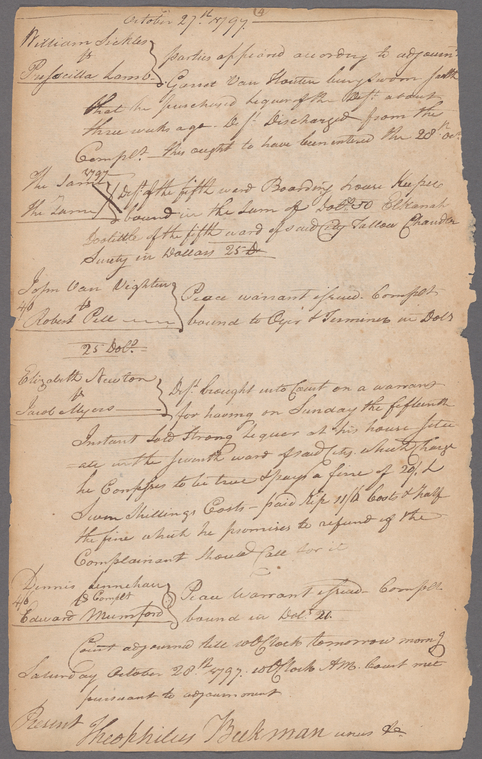 October 27th 1797
William Sickles
vs
Prescilla Lamb
parties appeared according to adjournt
Garret Van Houten being sworn saith
that he purchased Liquor of the Deft about
three weeks ago. Deft Discharged from the
Complt this ought to have been entered the 28th Octr
The Same
1797
vs
The Same
Deft of the fifth ward Boarding house Keeper
bound in the Sum of Dolls 50 Elkanah
Doolittle of the fifth ward of said City Tallow Chandler
Surety in Dollars 25 D
John Van Vighten
4/6 vs
Robert Pell
Peace warrant issued. Complt
bound to Oyer & Terminer in Dols
25 Dols
Elizabeth Newton
vs
Jacob Myers
Deft brought into Court on a warrant
for having on Sunday the fifteenth
Instant Sold Strong Liquor at his house situ
ate in the Seventh ward of said City which Charge
he Confesses to be true & pays a fine of 20/ &
Seven Shillings Costs – paid 11/6 Costs & half
the fine which he promises to refund if the
Complainant Should Call for it
Dennis
4/6 vs Complt
Edward Mumford
Peace Warrant issued – Complt
bound in Dols 25
Court adjourned till 10 OClock tomorrow morng
Saturday October 28th 1797. 10 OClock AM. Court met
pursuant to adjournment
Present Theophilus Beekman &c